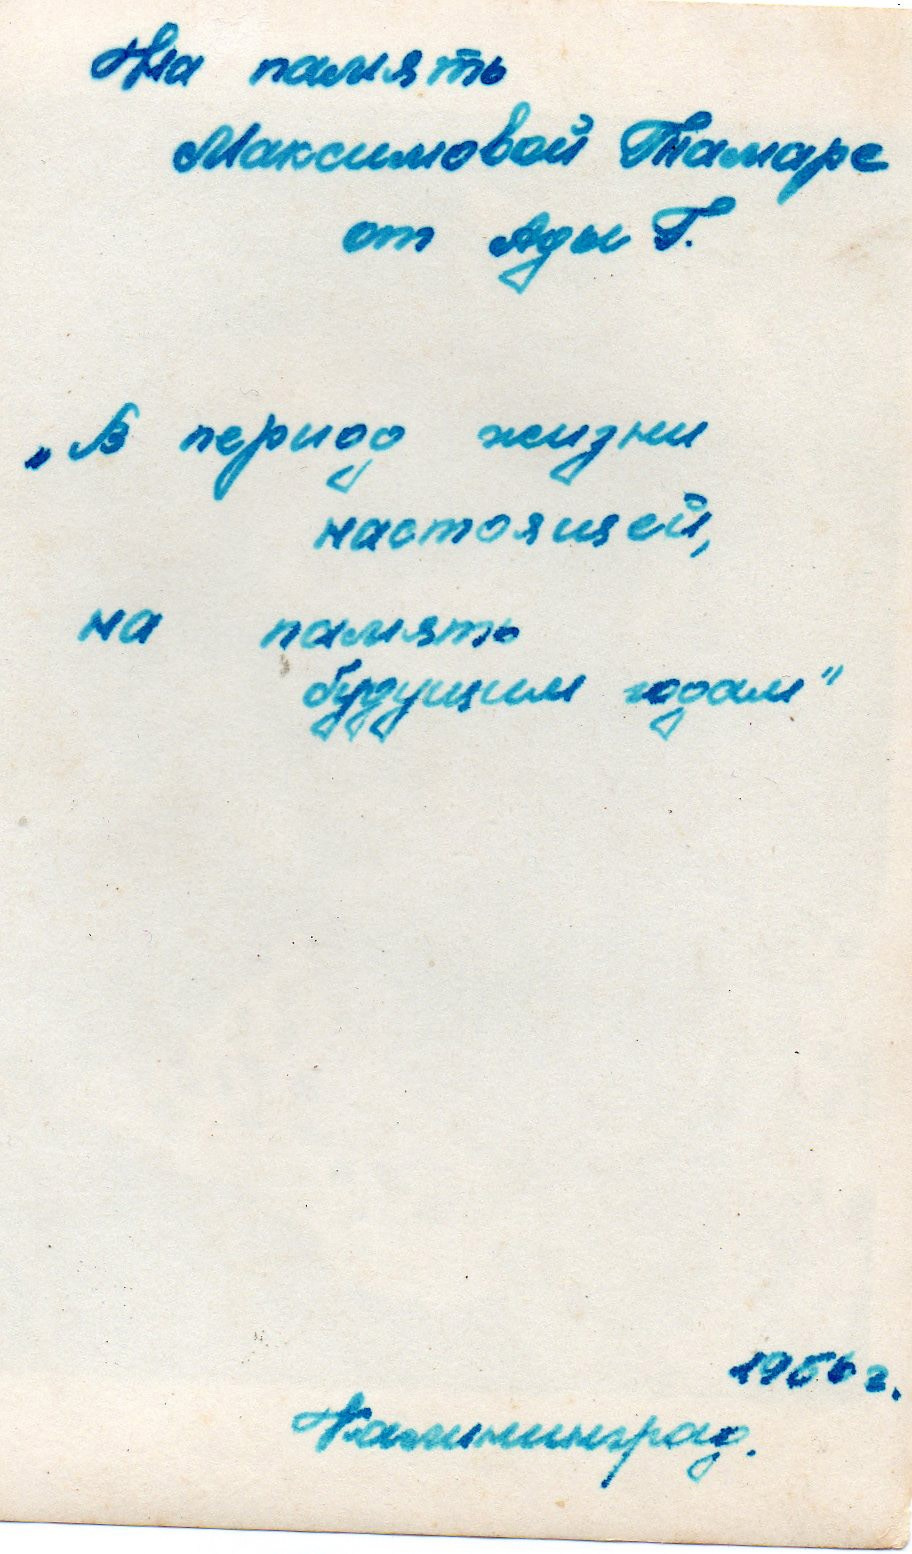 На память
Максимовой Тамаре
от Ады Г.
„В период жизни
настоящей,
на память
будущим годам"
1956 г.
Калининград.